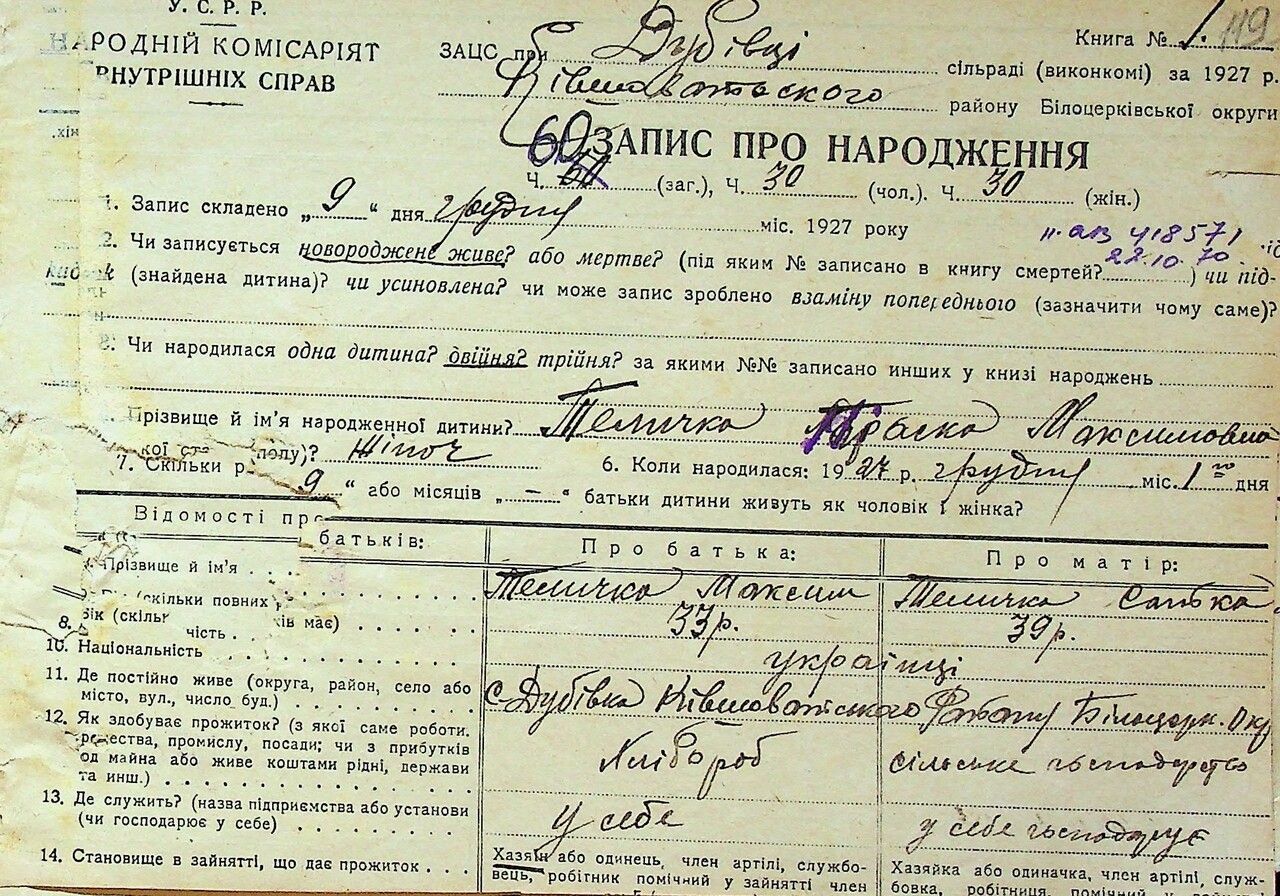 У. С. Р. Р.
НАРОДНІЙ КОМІСАРІЯТ
ВНУТРІШНІХ СПРАВ
ЗАЦС при Дубівці сільраді (виконкомі) за 1927 р.
Книга № 1. 119
Ківшоватського району Білоцерківської округи
ЗАПИС ПРО НАРОДЖЕННЯ
60
Ч. (заг.), Ч. 30 (чол.). Ч. 30 (жін.)
1. Запис складено „ 9 “ дня грудня міс. 1927 року
418571
22.10.70.
2. Чи записується новороджене живе? або мертве? (під яким № записано в книгу смертей? ) чи під-
кидьок (знайдена дитина)? чи усиновлена? чи може запис зроблено взаміну попереднього (зазначити чому саме)?
3. Чи народилася одна дитина? двійня? трійня? за якими №№ записано инших у книзі народжень
Прізвище й ім'я народженної дитини? Теличка Параска Максимовна
кої ста полу)? жіноч 6. Коли народилася: 1927 р. грудня міс. 1го дня
7. Скільки р 9 “ або місяців „ – “ батьки дитини живуть як чоловік і жінка?
Відомості про батьків: Про батька: Про матір:
Прізвище й ім'я Теличка Максим Теличка Санька
(скільки повних р
8. Вік (скільк ків має) 33р. 39р.
чість
10. Національність українці
11. Де постійно живе (округа, район, село або
місто, вул., число буд.) с. Дубівка Ківшоватського Району Білоцерк. Окр
12. Як здобуває прожиток? (з якої саме роботи.
ремества, промислу, посади; чи з прибутків
од майна або живе коштами рідні, держави
та инш.) Хлібороб сільське господарство
13. Де служить? (назва підприємства або установи
(чи господарює у себе) у себе у себе господарує
14. Становище в зайнятті, що дає прожиток
Хазяїн або одинець, член артілі, службо-
вець, робітник помічний у зайнятті член
Хазяйка або одиначка, член артілі, служ-
бовка, робітниця, помічний у